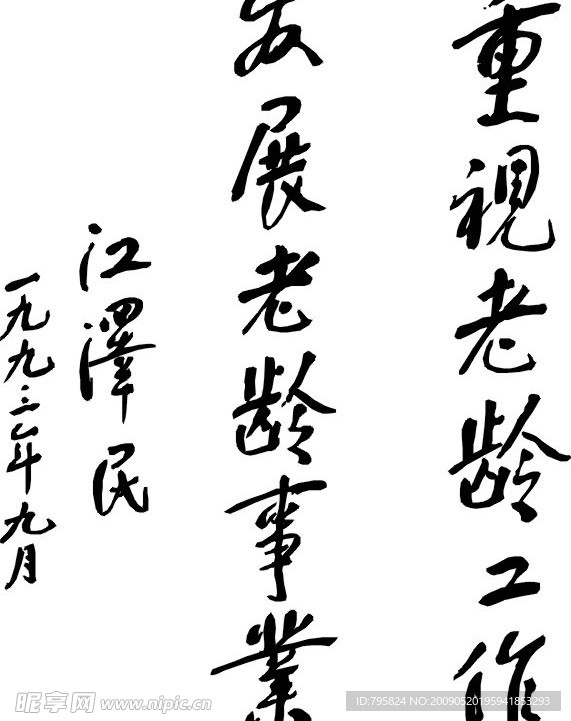 重視老龄工作
发展老龄事業
江澤民
一九九三年九月
昵享网 www.nipic.cn
ID:795824 NO:20090520195941853293